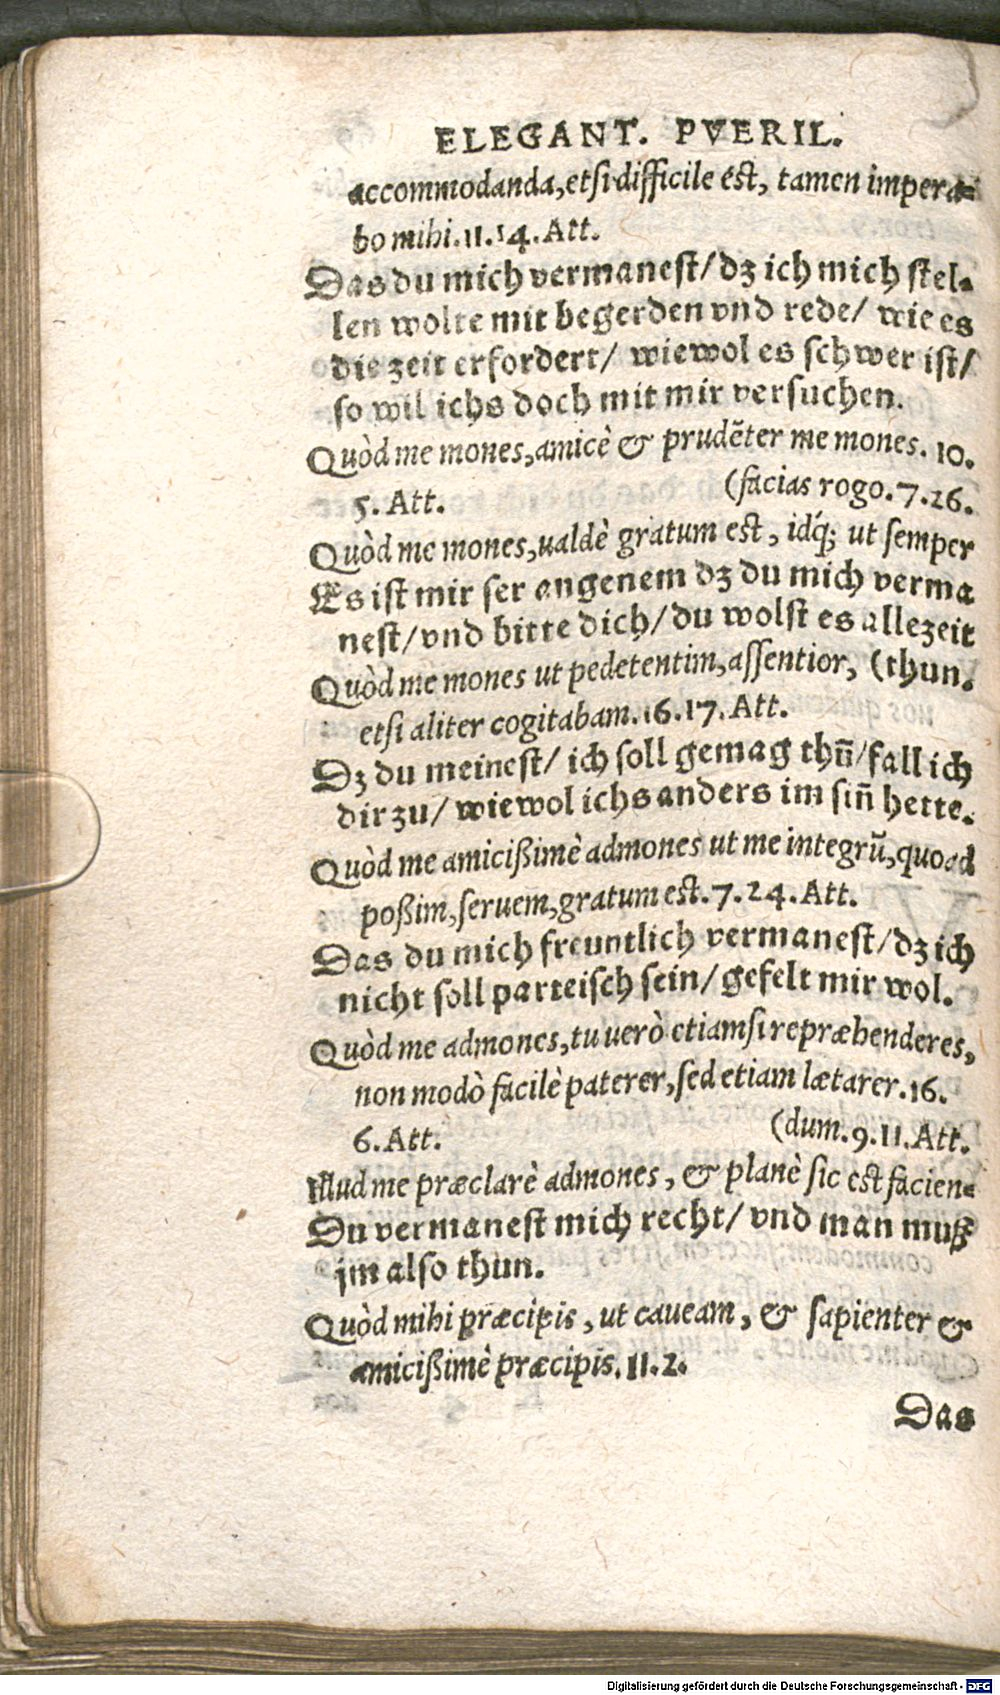 ELEGANT. PVERIL.
accommodanda, etsi difficile est, tamen impera-
bo mihi. 11. 14. Att.
Das du mich vermanest/ dz ich mich stel-
len wolte mit begerden vnd rede/ wie es
die zeit erfordert/ wiewol es schwer ist/
so wil ichs doch mit mir versuchen.
Quòd me mones, amicè & prudẽter me mones. 10.
5. Att. (facias rogo. 7. 26.
Quòd me mones, ualdè gratum est, idq́; ut semper
Es ist mir ser angenem dz du mich verma
nest/ vnd bitte dich/ du wolst es allezeit
Quòd me mones ut pedetentim, assentior, (thun.
etsi aliter cogitabam. 16. 17. Att.
Dz du meinest/ ich soll gemag thũ/ fall ich
dir zu/ wiewol ichs anders im siñ hette.
Quòd me amicißimè admones ut me integrũ, quoad
poßim, seruem, gratum est. 7. 24. Att.
Das du mich freuntlich vermanest/ dz ich
nicht soll parteisch sein/ gefelt mir wol.
Quòd me admones, tu uerò etiamsi repræhenderes,
non modò facilè paterer, sed etiam lætarer. 16.
6. Att. (dum. 9. 11. Att.
Illud me præclarè admones, & planè sic est facien-
Du vermanest mich recht/ vnd man muß
jm also thun.
Quòd mihi præcipis, ut caueam, & sapienter &
amicißimè præcipis. 11. 2.
Das
Digitalisierung gefördert durch die Deutsche Forschungsgemeinschaft - DFG